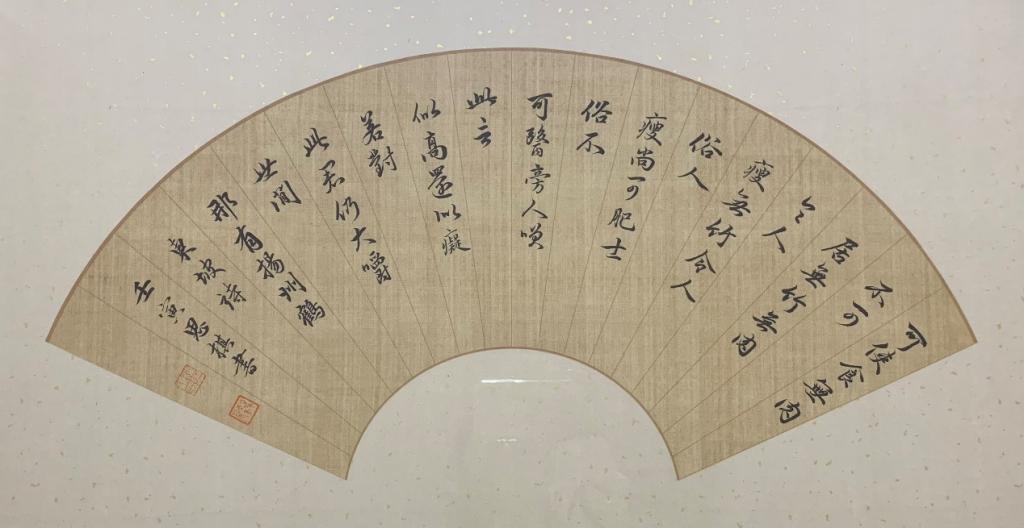 可使食無肉
不可
居無竹無肉
令人
瘦無竹令人
俗人
瘦尚可肥士
俗不
可醫旁人嘆
此言
似高還似癡
若對
此君仍大嚼
世間
那有揚州鶴
東坡詩
壬寅思棋書